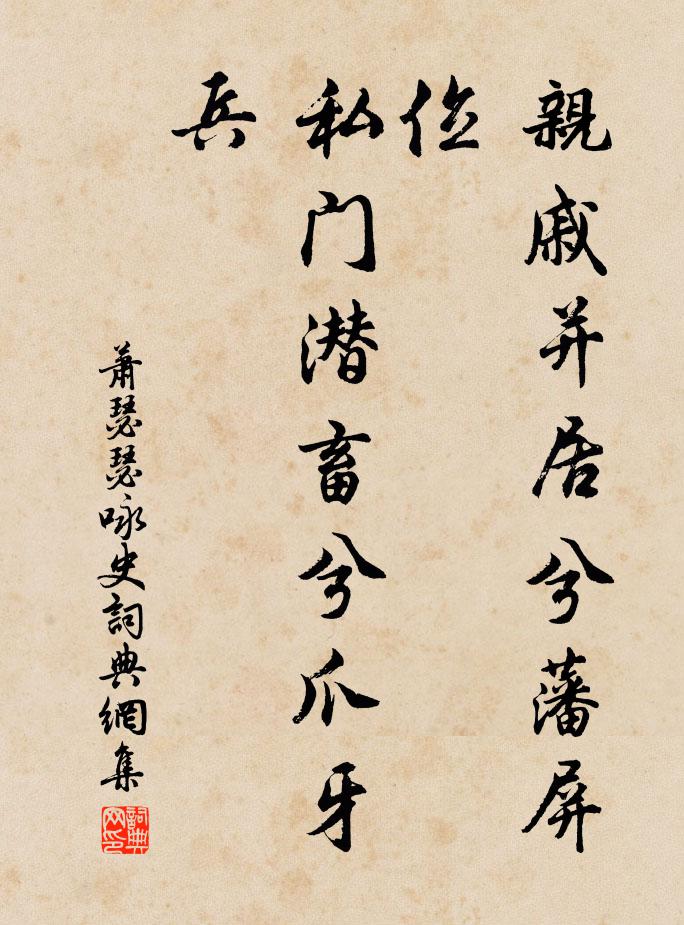 親戚并居兮藩屏
位
私门潜畜兮爪牙
兵
蕭瑟瑟咏史詞典網集
詞典网印